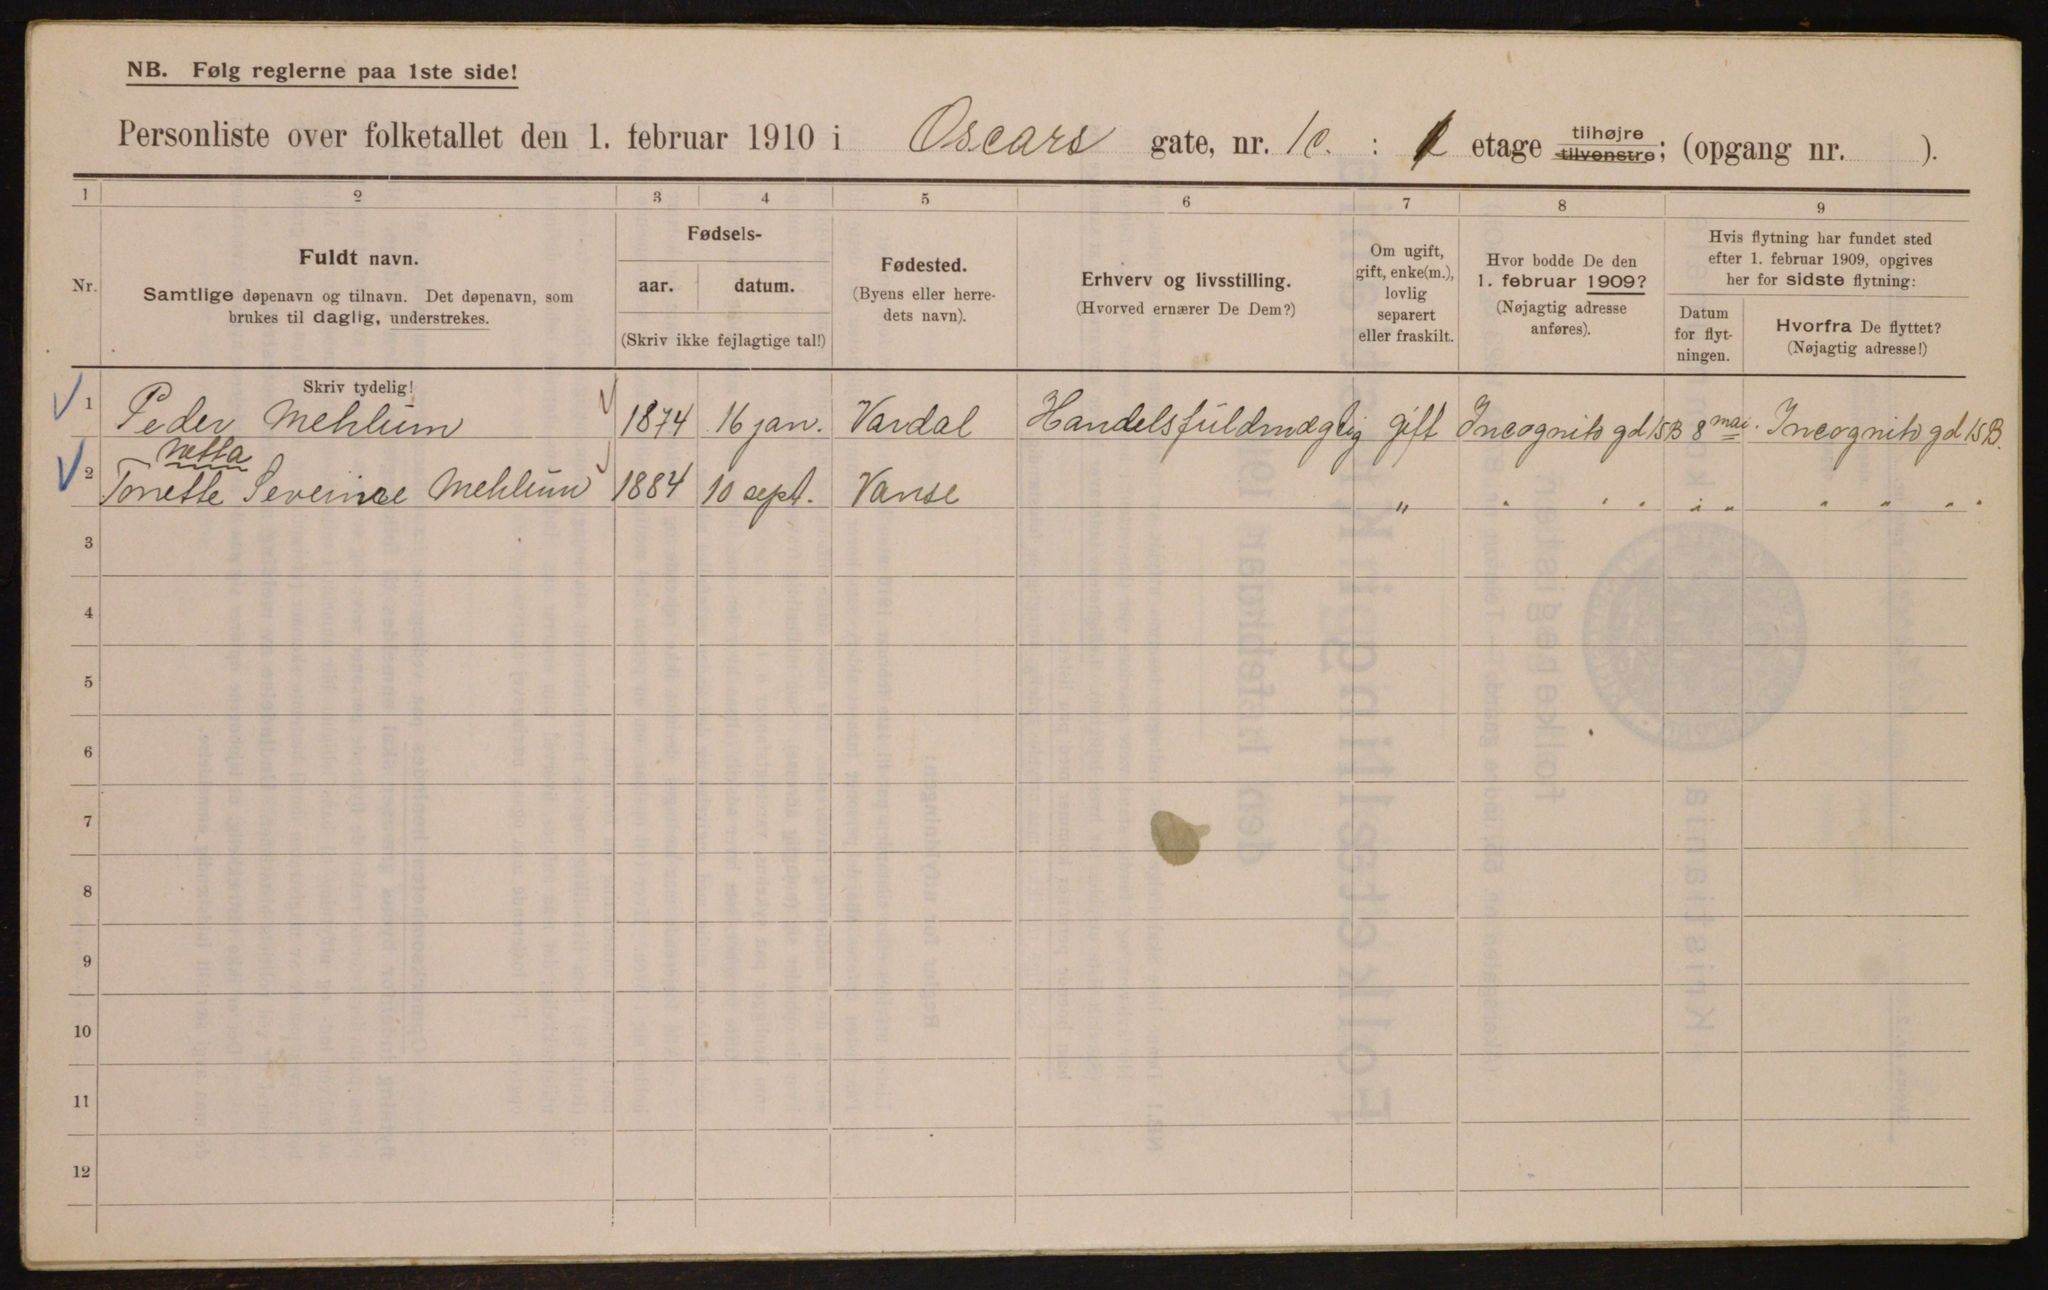 NB. Følg reglerne paa 1ste side!
Personliste over folketallet den 1. februar 1910 i Oscars gate, nr. 1c. : etage tilhøjre tilvenstre; (opgang nr. ).
1 2 3 4 5 6 7 8 9
Nr.
Fuldt navn.
Samtlige døpenavn og tilnavn. Det døpenavn, som
brukes til daglig, understrekes.
Fødsels-
aar. datum.
(Skriv ikke fejlagtige tal!)
Fødested.
(Byens eller herre-
dets navn).
Erhverv og livsstilling.
(Hvorved ernærer De Dem?)
Om ugift,
gift, enke(m.),
lovlig
separert
eller fraskilt.
Hvor bodde De den
1. februar 1909?
(Nøjagtig adresse
anføres).
Hvis flytning har fundet sted
efter 1. februar 1909, opgives
her for sidste flytning:
Datum
for flyt-
ningen.
Hvorfra De flyttet?
(Nøjagtig adresse!)
Skriv tydelig!
1 Peder Mehlum 1874 16 jan. Vardal Handelsfuldmægtig gift Incognito gd 15B 8 mai. Incognito gd 15B.
Netta
2 Tonette Severine Mehlum 1884 10 sept. Vanse " " " " " " " " " "
3
4
5
6
7
8
9
10
11
12